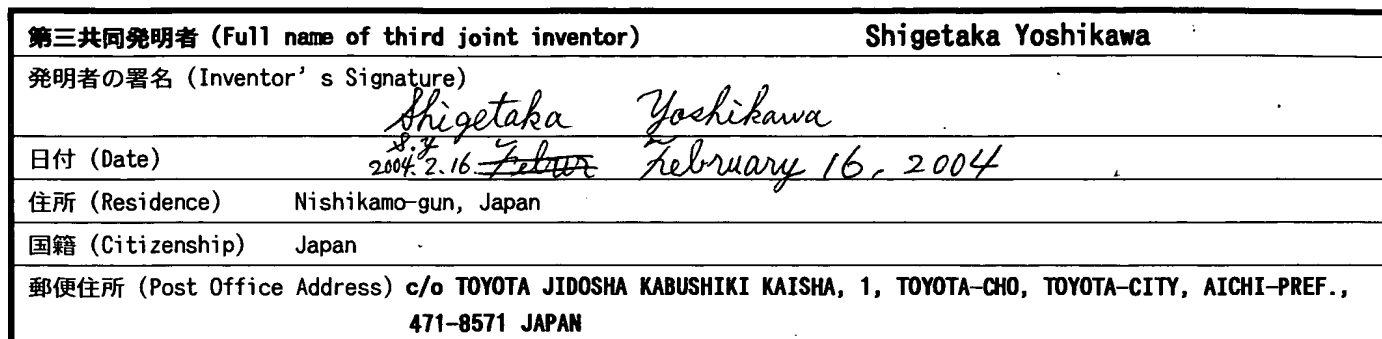 第三共同発明者 (Full name of third joint inventor) Shigetaka Yoshikawa
発明者の署名 (Inventor's Signature)
Shigetaka Yoshikawa
S.Y
日付 (Date) 2004.2.16. Februr February 16, 2004
住所 (Residence) Nishikamo-gun, Japan
国籍 (Citizenship) Japan
郵便住所 (Post Office Address) c/o TOYOTA JIDOSHA KABUSHIKI KAISHA, 1, TOYOTA-CHO, TOYOTA-CITY, AICHI-PREF.,
471-8571 JAPAN